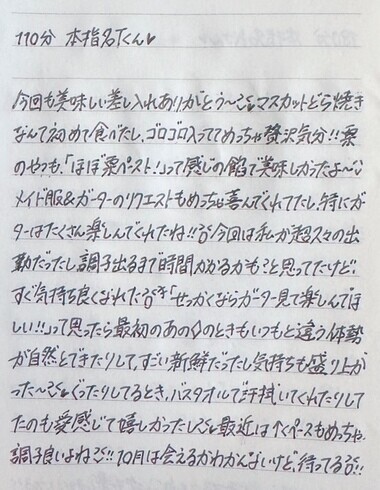 110分 本指名Tくん♥
今回も美味しい差し入れありがとう〜マスカットどら焼き
なんて初めて食べたし、ゴロゴロ入っててめっちゃ贅沢気分!!栗
のやつも、「ほぼ栗ペースト!」って感じの餡で美味しかったよ〜
メイド服&ガーターのリクエストもめっちゃ喜んでくれてたし、特にガー
ターはたくさん楽しんでくれたね!!今回は私が超久々の出
勤だったし、調子出るまで時間かかるかも?と思ってたけど、
すぐ気持ち良くなれた「せっかくならガーター見て楽しんでほ
しい!!」って思ったら最初のあの のときもいつもと違う体勢
が自然とできたりして、すごい新鮮だったし気持ちも盛り上が
った〜ぐったりしてるとき、バスタオルで汗拭いてくれたりし
てたのも愛感じて嬉しかったし最近は ペースもめっちゃ
調子良いよね!!10月は会えるかわかんないけど、待ってる!!